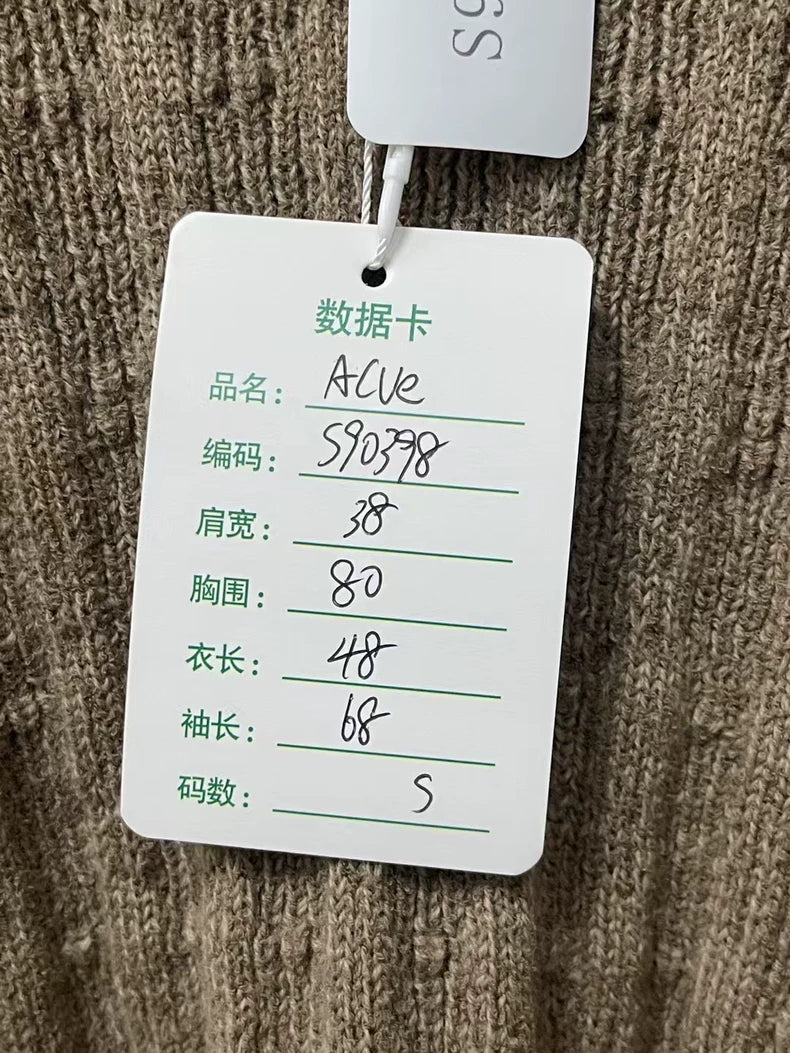 S9
数据卡
品名: ACVe
编码: S90398
肩宽: 38
胸围: 80
衣长: 48
袖长: 68
码数: S